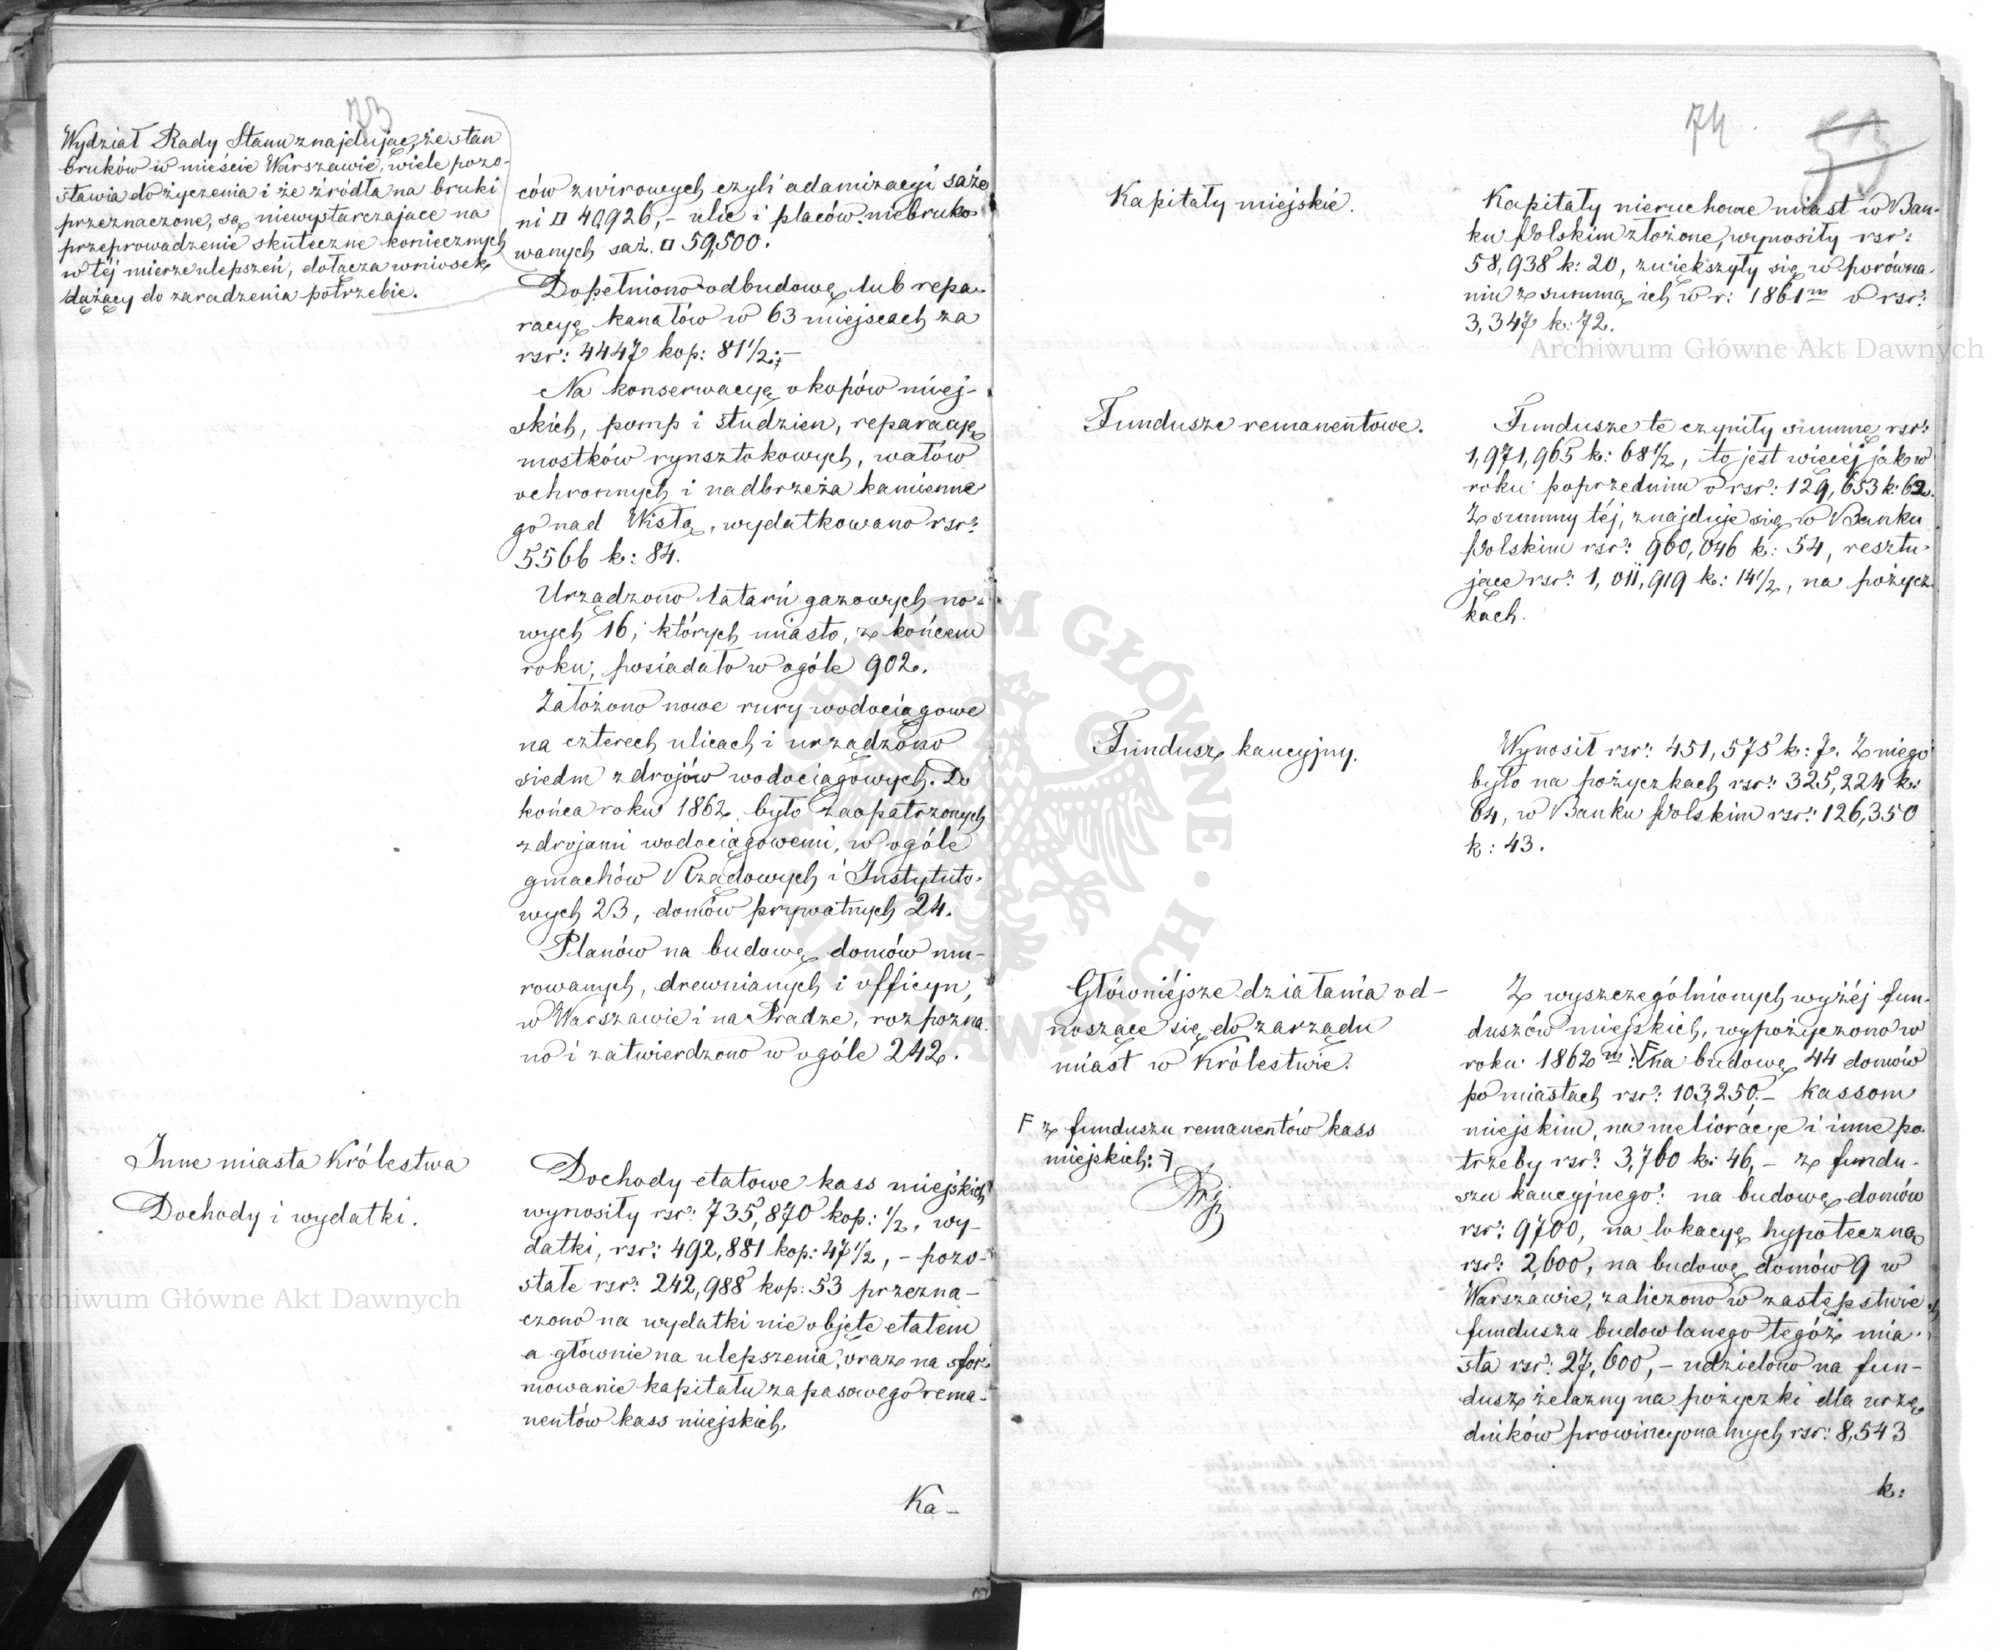 73
Wydział Rady Stanu znajdując, że stan
bruków w mieście Warszawie, wiele pozo-
stawia do życzenia i że źródła na bruki
przeznaczone, są niewystarczające na
przeprowadzenie skuteczne koniecznych
w téj mierze ulepszeń, dołącza wniosek
dążący do zaradzenia potrzebie.
ców żwirowych czyli adamizacyi sąże
ni □ 40,926, – ulic i placów niebruko
wanych saż. □ 59,500.
Dopełniono odbudowę lub repa-
racyę kanałów w 63 miejscach za
rsr: 4447 kop: 81½; –
Na konserwacyę okopów miej-
skich, pomp i studzien, reparacyę
mostków rynsztokowych, wałów
ochronnych i nadbrzeża kamienne
go nad Wisłą, wydatkowano rsr:
5566 k: 84.
Urządzono latarń gazowych no-
wych 16, których miasto, z końcem
roku, posiadało w ogóle 902.
Założono nowe rury wodociągowe
na czterech ulicach i urządzono
siedm zdrojów wodociągowych. Do
końca roku 1862, było zaopatrzonych
zdrojami wodociągowemi, w ogóle
gmachów Rządowych i Instytuto-
wych 23, domów prywatnych 24.
Planów na budowę domów mu-
rowanych, drewnianych i officyn,
w Warszawie i na Pradze, rozpozna
no i zatwierdzono w ogóle 242.
Inne miasta Królestwa
Dochody i wydatki.
Dochody etatowe kass miejskich
wynosiły rsr: 735,870 kop: ½, wy-
datki, rsr: 492,881 kop: 47½, – pozo-
stałe rsr: 242,988 kop: 53 przezna-
czono na wydatki nie objęte etatem
a głównie na ulepszenia, oraz na sfor-
mowanie kapitału zapasowego rema-
nentów kass miejskich.
Ka-
74
53
Kapitały miejskie.
Kapitały nieruchome miast w Ban-
ku Polskim złożone, wynosiły rsr:
58,938 k: 20, zwiększyły się w porówna-
niu z summą ich w r: 1861m o rsr:
3,347 k: 72.
Fundusze remanentowe.
Fundusze te czyniły summę rsr:
1,971,965 k: 68½, to jest więcéj jak w
roku poprzednim o rsr: 129,653 k: 62.
Z summy téj, znajduje się w Banku
Polskim rsr: 960,046 k: 54, resztu-
jące rsr: 1,011,919 k: 14½, na pożycz
kach.
Fundusz kaucyjny.
Wynosił rsr: 451,575 k: 7. Z niego
było na pożyczkach rsr: 325,224 k:
64, w Banku Polskim rsr: 126,350
k: 43.
Główniejsze działania od-
noszące się do zarządu
miast w Królestwie.
F z funduszu remanentów kass
miejskich: F
Z wyszczególnionych wyżéj fun-
duszów miejskich, wypożyczono w
roku 1862m: F na budowę 44 domów
po miastach rsr: 103,250, – kassom
miejskim, na melioracye i inne po
trzeby rsr: 3,760 k: 46, – z fundu-
szu kaucyjnego: na budowę domów
rsr: 9700, na lokacyę hypoteczną
rsr: 2,600, na budowę domów 9 w
Warszawie, zaliczono w zastępstwie
funduszu budowlanego tegóż mia-
sta rsr: 27,600, – udzielono na fun-
dusz żelazny na pożyczki dla urzę
dników prowincyonalnych rsr: 8,543
k:
Archiwum Główne Akt Dawnych
Archiwum Główne Akt Dawnych
ARCHIWUM GŁÓWNE AKT DAWNYCH